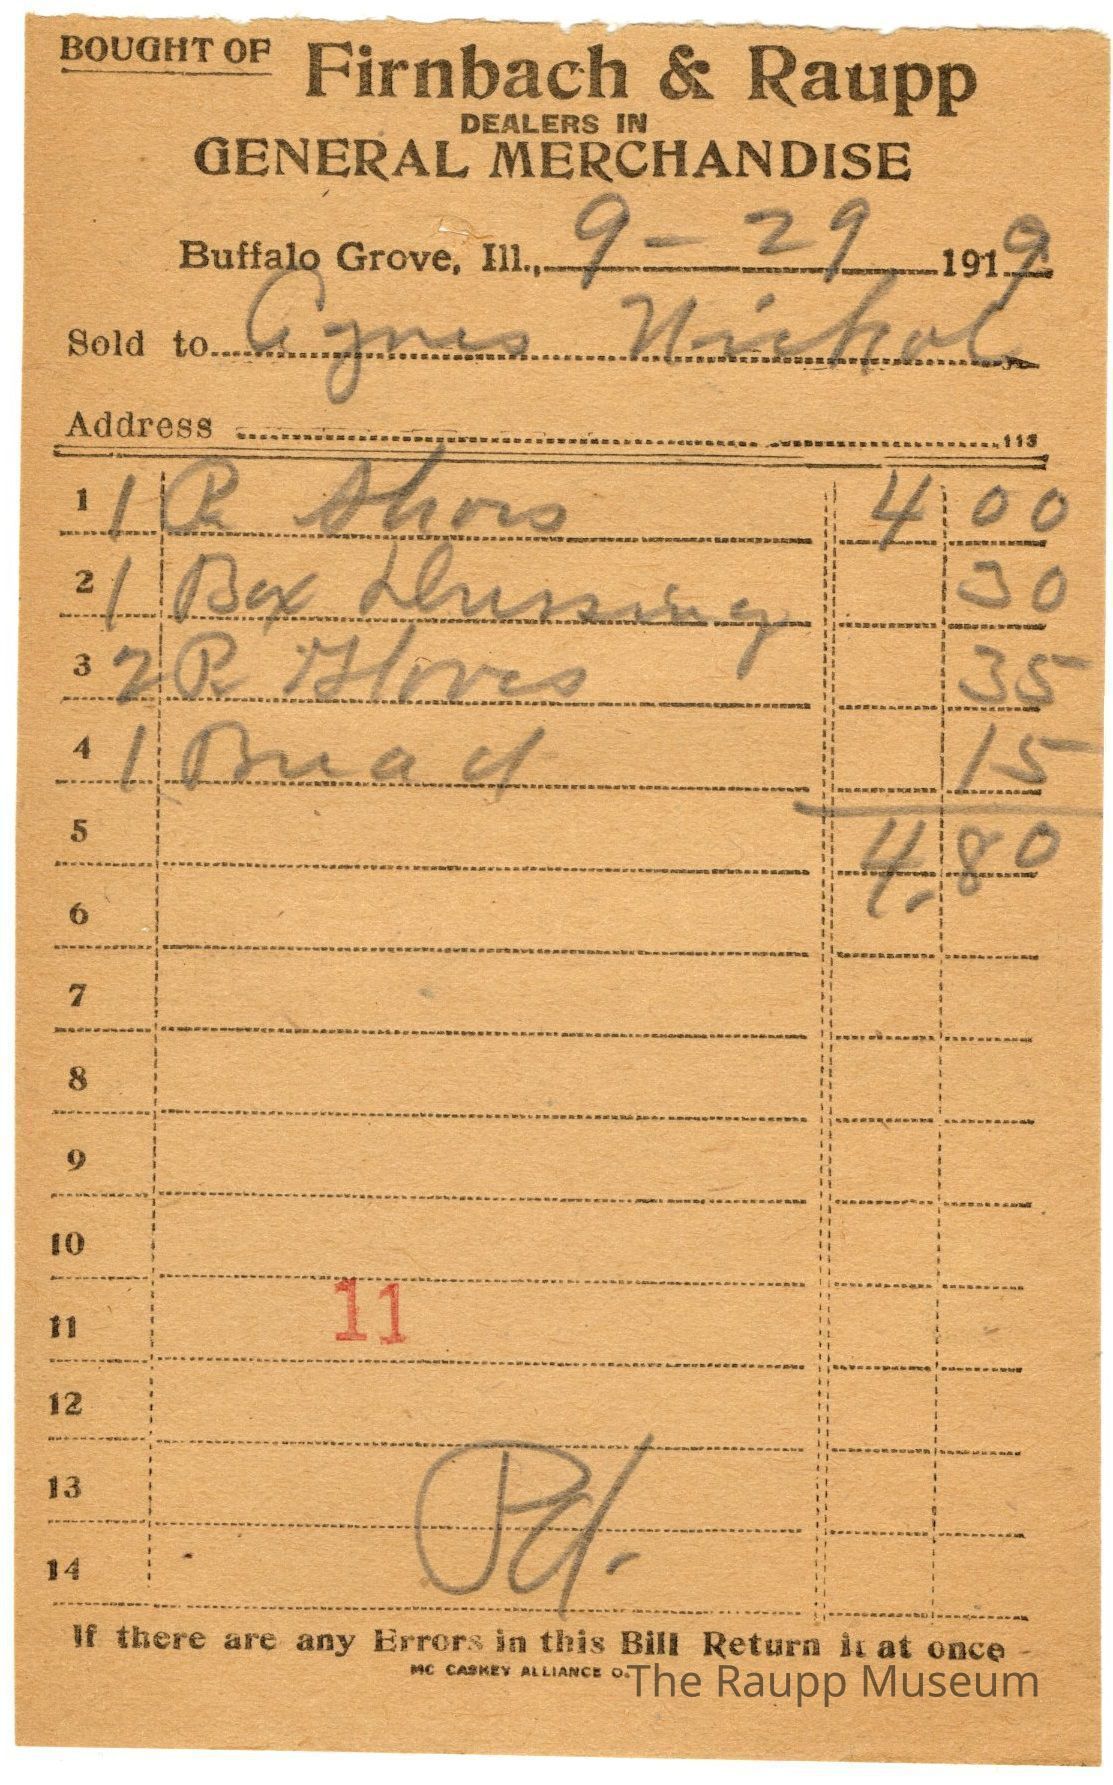 BOUGHT OF Firnbach & Raupp
DEALERS IN
GENERAL MERCHANDISE
Buffalo Grove, Ill., 9-29 1919
Sold to Agnes Nickol
Address 113
1 1 Pr Shoes 4 00
2 1 Box Dressing 30
3 2 Pr Gloves 35
4 1 Bread 15
5 4.80
6
7
8
9
10
11 11
12
13
Pd.
14
If there are any Errors in this Bill Return it at once
MC CASKEY ALLIANCE O.
The Raupp Museum